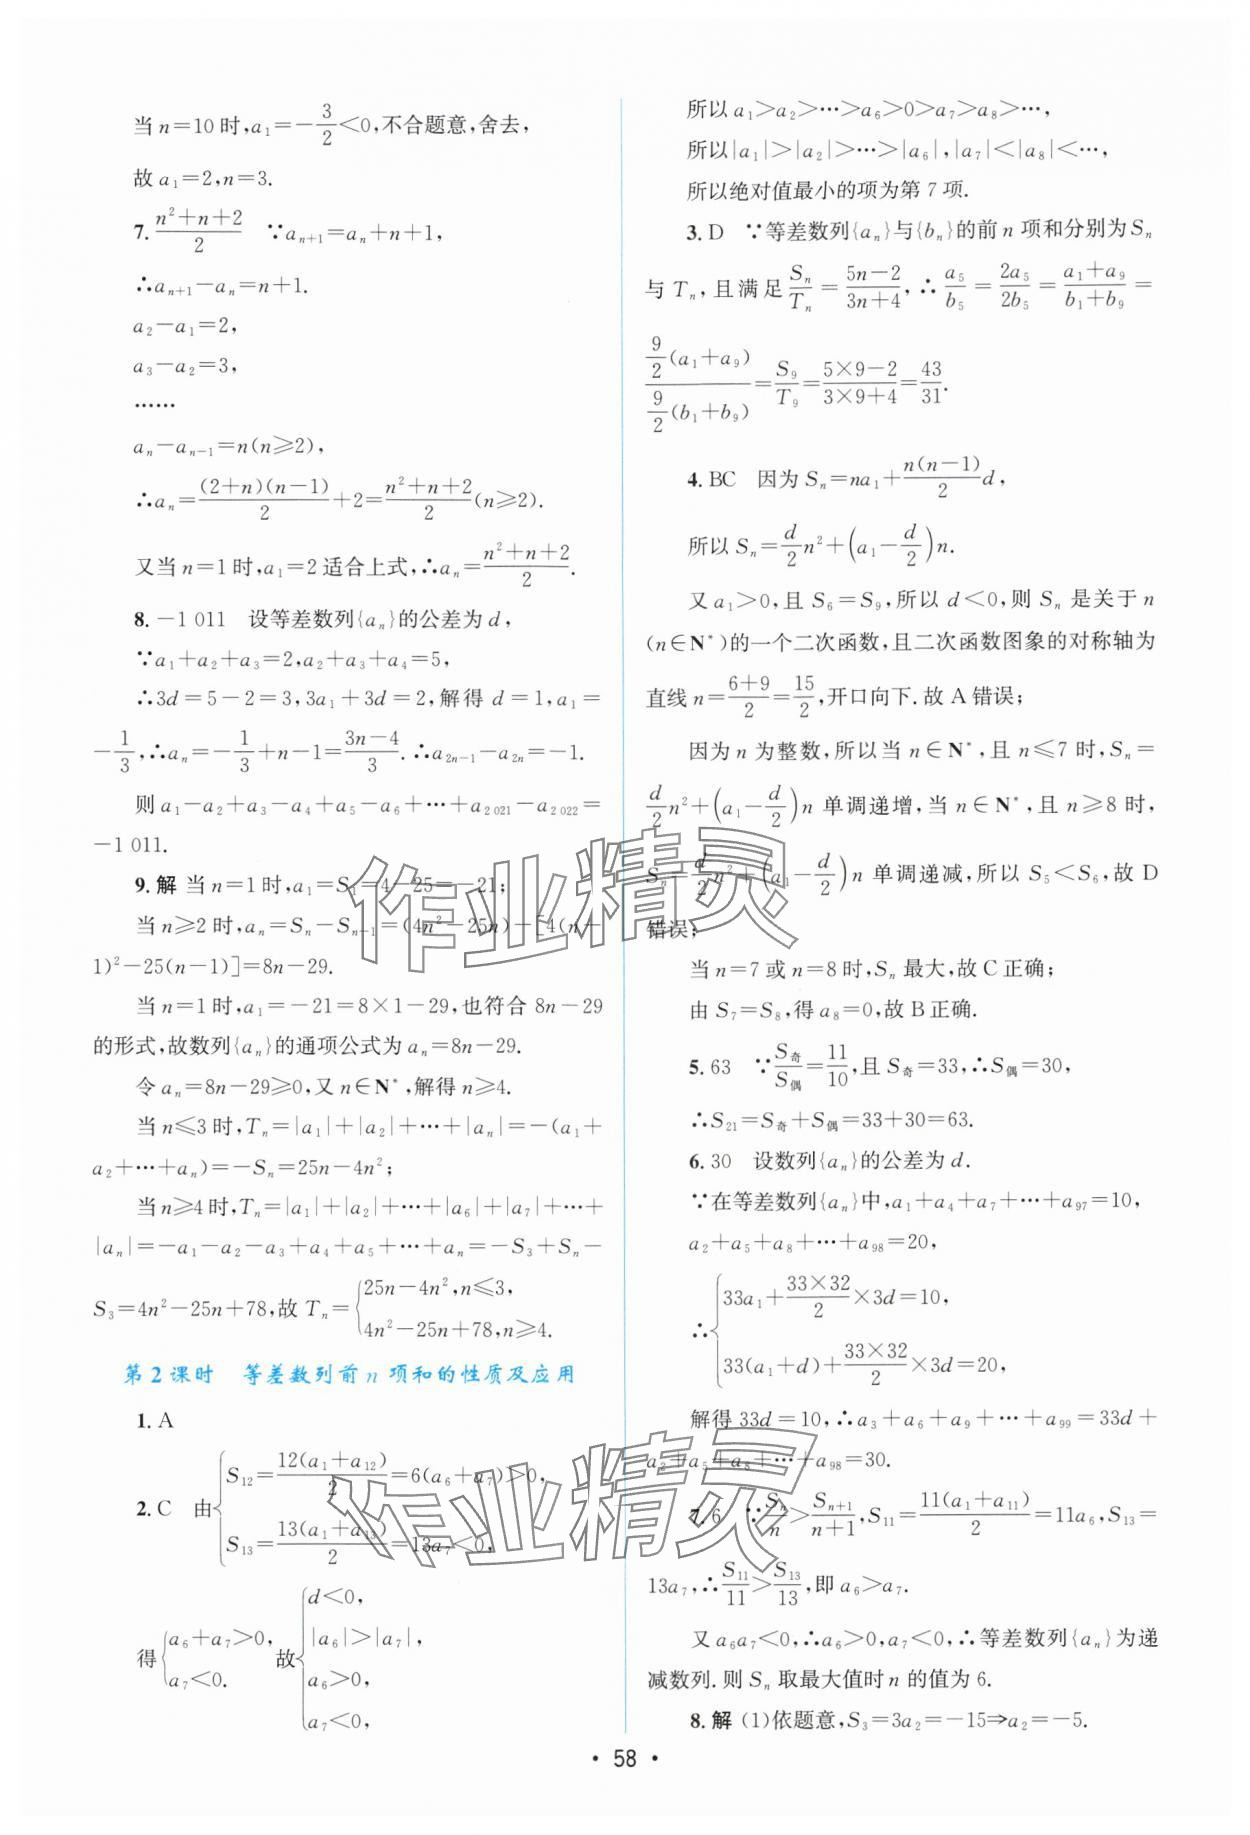 当 n=10 时,a₁=-3/2<0,不合题意,舍去,
故 a₁=2,n=3.
7. (n²+n+2)/2 ∵aₙ₊₁=aₙ+n+1,
∴aₙ₊₁-aₙ=n+1.
a₂-a₁=2,
a₃-a₂=3,
……
aₙ-aₙ₋₁=n(n≥2),
∴aₙ=(2+n)(n-1)/2+2=(n²+n+2)/2(n≥2).
又当 n=1 时,a₁=2 适合上式,∴aₙ=(n²+n+2)/2.
8. -1 011 设等差数列{aₙ}的公差为 d,
∵a₁+a₂+a₃=2,a₂+a₃+a₄=5,
∴3d=5-2=3,3a₁+3d=2,解得 d=1,a₁=
-1/3,∴aₙ=-1/3+n-1=(3n-4)/3.∴a₂ₙ₋₁-a₂ₙ=-1.
则 a₁-a₂+a₃-a₄+a₅-a₆+…+a₂₀₂₁-a₂₀₂₂=
-1 011.
9. 解 当 n=1 时,a₁=S₁=4-25=-21;
当 n≥2 时,aₙ=Sₙ-Sₙ₋₁=(4n²-25n)-[4(n-
1)²-25(n-1)]=8n-29.
当 n=1 时,a₁=-21=8×1-29,也符合 8n-29
的形式,故数列{aₙ}的通项公式为 aₙ=8n-29.
令 aₙ=8n-29≥0,又 n∈N*,解得 n≥4.
当 n≤3 时,Tₙ=|a₁|+|a₂|+…+|aₙ|=-(a₁+
a₂+…+aₙ)=-Sₙ=25n-4n²;
当 n≥4 时,Tₙ=|a₁|+|a₂|+…+|a₆|+|a₇|+…+
|aₙ|=-a₁-a₂-a₃+a₄+a₅+…+aₙ=-S₃+Sₙ-
S₃=4n²-25n+78,故 Tₙ={25n-4n²,n≤3,
4n²-25n+78,n≥4.
第 2 课时 等差数列前 n 项和的性质及应用
1. A
2. C 由{S₁₂=12(a₁+a₁₂)/2=6(a₆+a₇)>0,
S₁₃=13(a₁+a₁₃)/2=13a₇<0,
得{a₆+a₇>0,
a₇<0.
故{d<0,
|a₆|>|a₇|,
a₆>0,
a₇<0,
所以 a₁>a₂>…>a₆>0>a₇>a₈>…,
所以|a₁|>|a₂|>…>|a₆|,|a₇|<|a₈|<…,
所以绝对值最小的项为第 7 项.
3. D ∵等差数列{aₙ}与{bₙ}的前 n 项和分别为 Sₙ
与 Tₙ,且满足 Sₙ/Tₙ=(5n-2)/(3n+4),∴a₅/b₅=2a₅/2b₅=(a₁+a₉)/(b₁+b₉)=
(9/2(a₁+a₉))/(9/2(b₁+b₉))=S₉/T₉=(5×9-2)/(3×9+4)=43/31.
4. BC 因为 Sₙ=na₁+n(n-1)/2 d,
所以 Sₙ=d/2 n²+(a₁-d/2)n.
又 a₁>0,且 S₆=S₉,所以 d<0,则 Sₙ 是关于 n
(n∈N*)的一个二次函数,且二次函数图象的对称轴为
直线 n=(6+9)/2=15/2,开口向下.故 A 错误;
因为 n 为整数,所以当 n∈N*,且 n≤7 时,Sₙ=
d/2 n²+(a₁-d/2)n 单调递增,当 n∈N*,且 n≥8 时,
Sₙ=d/2 n²+(a₁-d/2)n 单调递减,所以 S₅<S₆,故 D
错误;
当 n=7 或 n=8 时,Sₙ 最大,故 C 正确;
由 S₇=S₈,得 a₈=0,故 B 正确.
5. 63 ∵S奇/S偶=11/10,且 S奇=33,∴S偶=30,
∴S₂₁=S奇+S偶=33+30=63.
6. 30 设数列{aₙ}的公差为 d.
∵在等差数列{aₙ}中,a₁+a₄+a₇+…+a₉₇=10,
a₂+a₅+a₈+…+a₉₈=20,
∴{33a₁+(33×32)/2×3d=10,
33(a₁+d)+(33×32)/2×3d=20,
解得 33d=10,∴a₃+a₆+a₉+…+a₉₉=33d+
a₂+a₅+a₈+…+a₉₈=30.
7. 6 ∵Sₙ/n>Sₙ₊₁/(n+1),S₁₁=11(a₁+a₁₁)/2=11a₆,S₁₃=
13a₇,∴S₁₁/11>S₁₃/13,即 a₆>a₇.
又 a₆a₇<0,∴a₆>0,a₇<0,∴等差数列{aₙ}为递
减数列.则 Sₙ 取最大值时 n 的值为 6.
8. 解 (1)依题意,S₃=3a₂=-15⇒a₂=-5.
作业精灵
作业精灵
· 58 ·